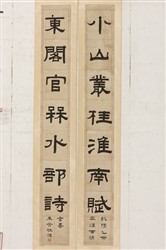 小山叢桂淮南賦
東閣官梅水部詩